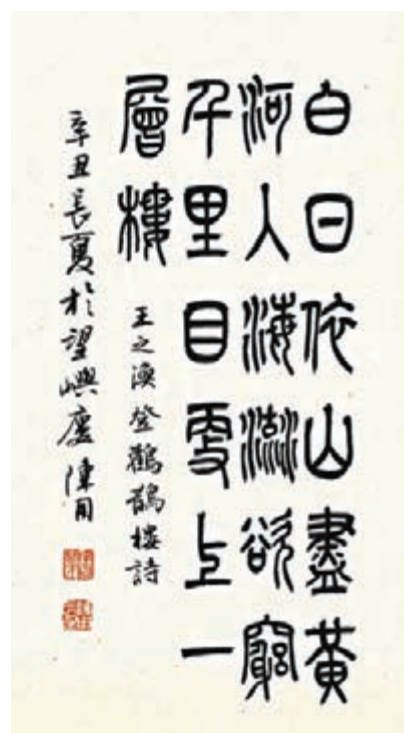 白日依山盡黃
河入海流欲窮
千里目更上一
層樓
王之渙登鸛鵲樓詩
辛丑長夏於望嶼廬陳